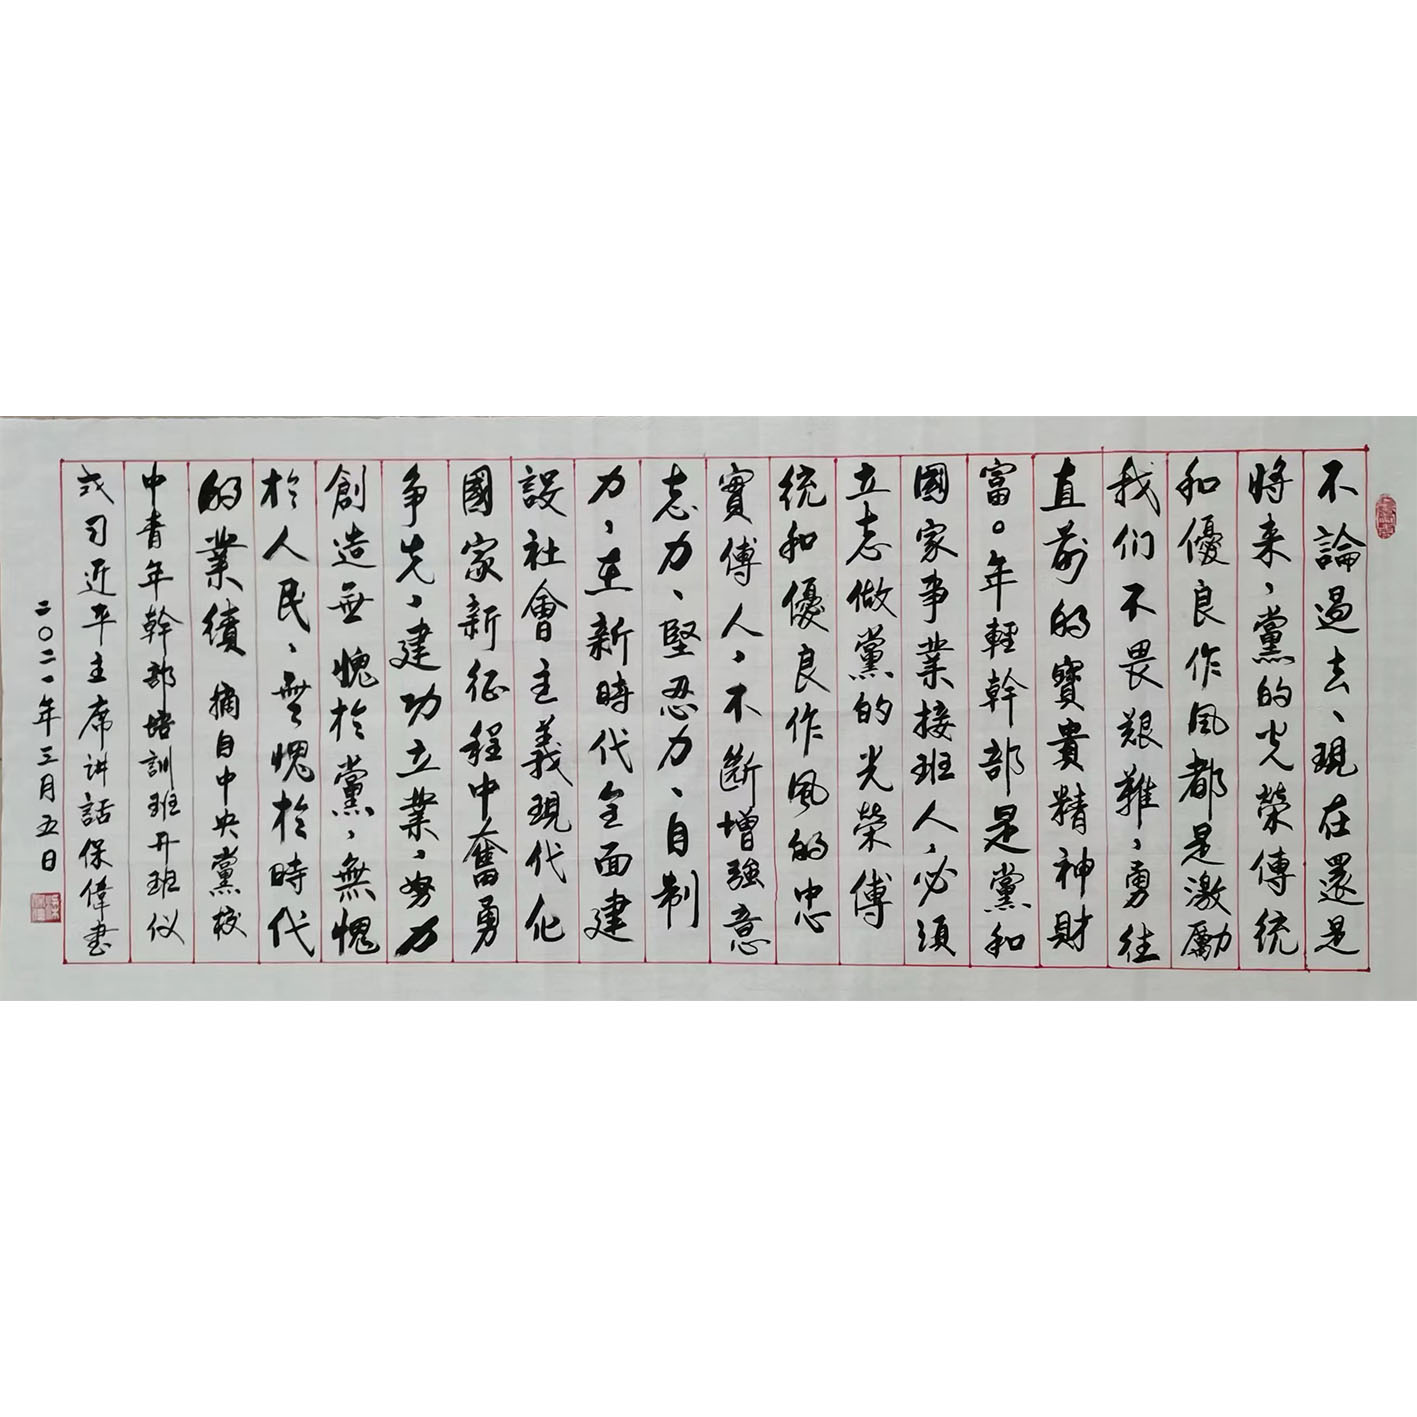 不論過去、現在還是
將来，黨的光榮傳統
和優良作風都是激勵
我们不畏艱難，勇往
直前的寶貴精神財
富。年輕幹部是黨和
國家事業接班人，必須
立志做黨的光榮傳
统和優良作風的忠
實傳人，不斷增强意
志力、堅忍力、自制
力，在新時代全面建
設社會主義現代化
國家新征程中奮勇
争先，建功立業，努力
創造無愧於黨，無愧
於人民，無愧於時代
的業績 摘自中央黨校
中青年幹部培訓班开班仪
式习近平主席讲話保偉書
二〇二一年三月五日